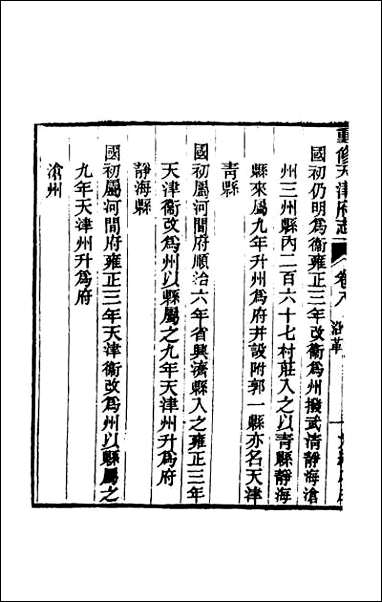 重修天津府志 卷八 沿革
國初仍明爲衞雍正三年改衞爲州撥武清靜海滄
州三州縣內二百六十七村莊入之以青縣靜海
縣來屬九年升州爲府并設附郭一縣亦名天津
青縣
國初屬河間府順治六年省興濟縣入之雍正三年
天津衞改爲州以縣屬之九年天津州升爲府
靜海縣
國初屬河間府雍正三年天津衞改爲州以縣屬之
九年天津州升爲府
滄州